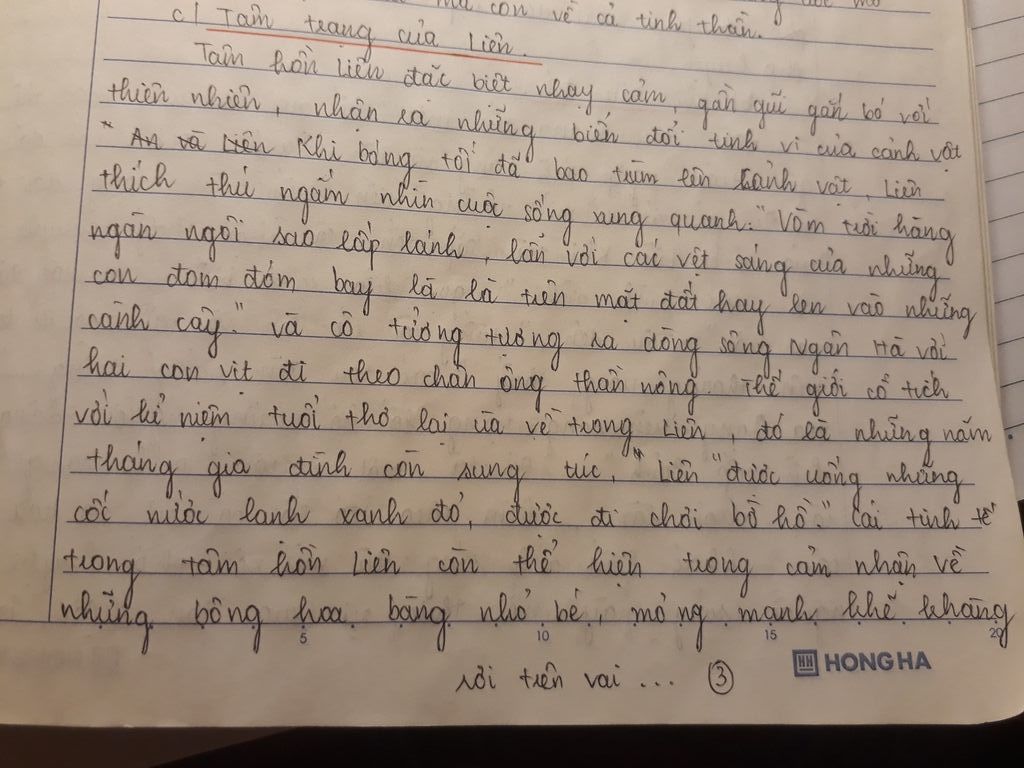 mà con về cả tinh thần.
c/ Tâm trạng của Liên.
Tâm hồn Liên đặc biệt nhạy cảm, gần gũi gắn bó với
thiên nhiên, nhận ra những biến đổi tinh vi của cảnh vật
* An và Liên Khi bóng tối đã bao trùm lên cảnh vật, Liên
thích thú ngắm nhìn cuộc sống xung quanh. "Vòm trời hàng
ngàn ngôi sao lấp lánh, lẫn với các vệt sáng của những
con đom đóm bay là là trên mặt đất hay len vào những
cành cây." và cô tưởng tượng ra dòng sông Ngân Hà với
hai con vịt đi theo chân ông thần nông. Thế giới cổ tích
với kỉ niệm tuổi thơ lại ùa về trong Liên, đó là những năm
tháng gia đình còn sung túc, "Liên "được uống những
cốc nước lạnh xanh đỏ, được đi chơi bờ hồ." Cái tinh tế
trong tâm hồn Liên còn thể hiện trong cảm nhận về
những bông hoa bàng nhỏ bé, mỏng manh khẽ khàng
5 10 15 20
rơi trên vai ... 3
HH HONG HA